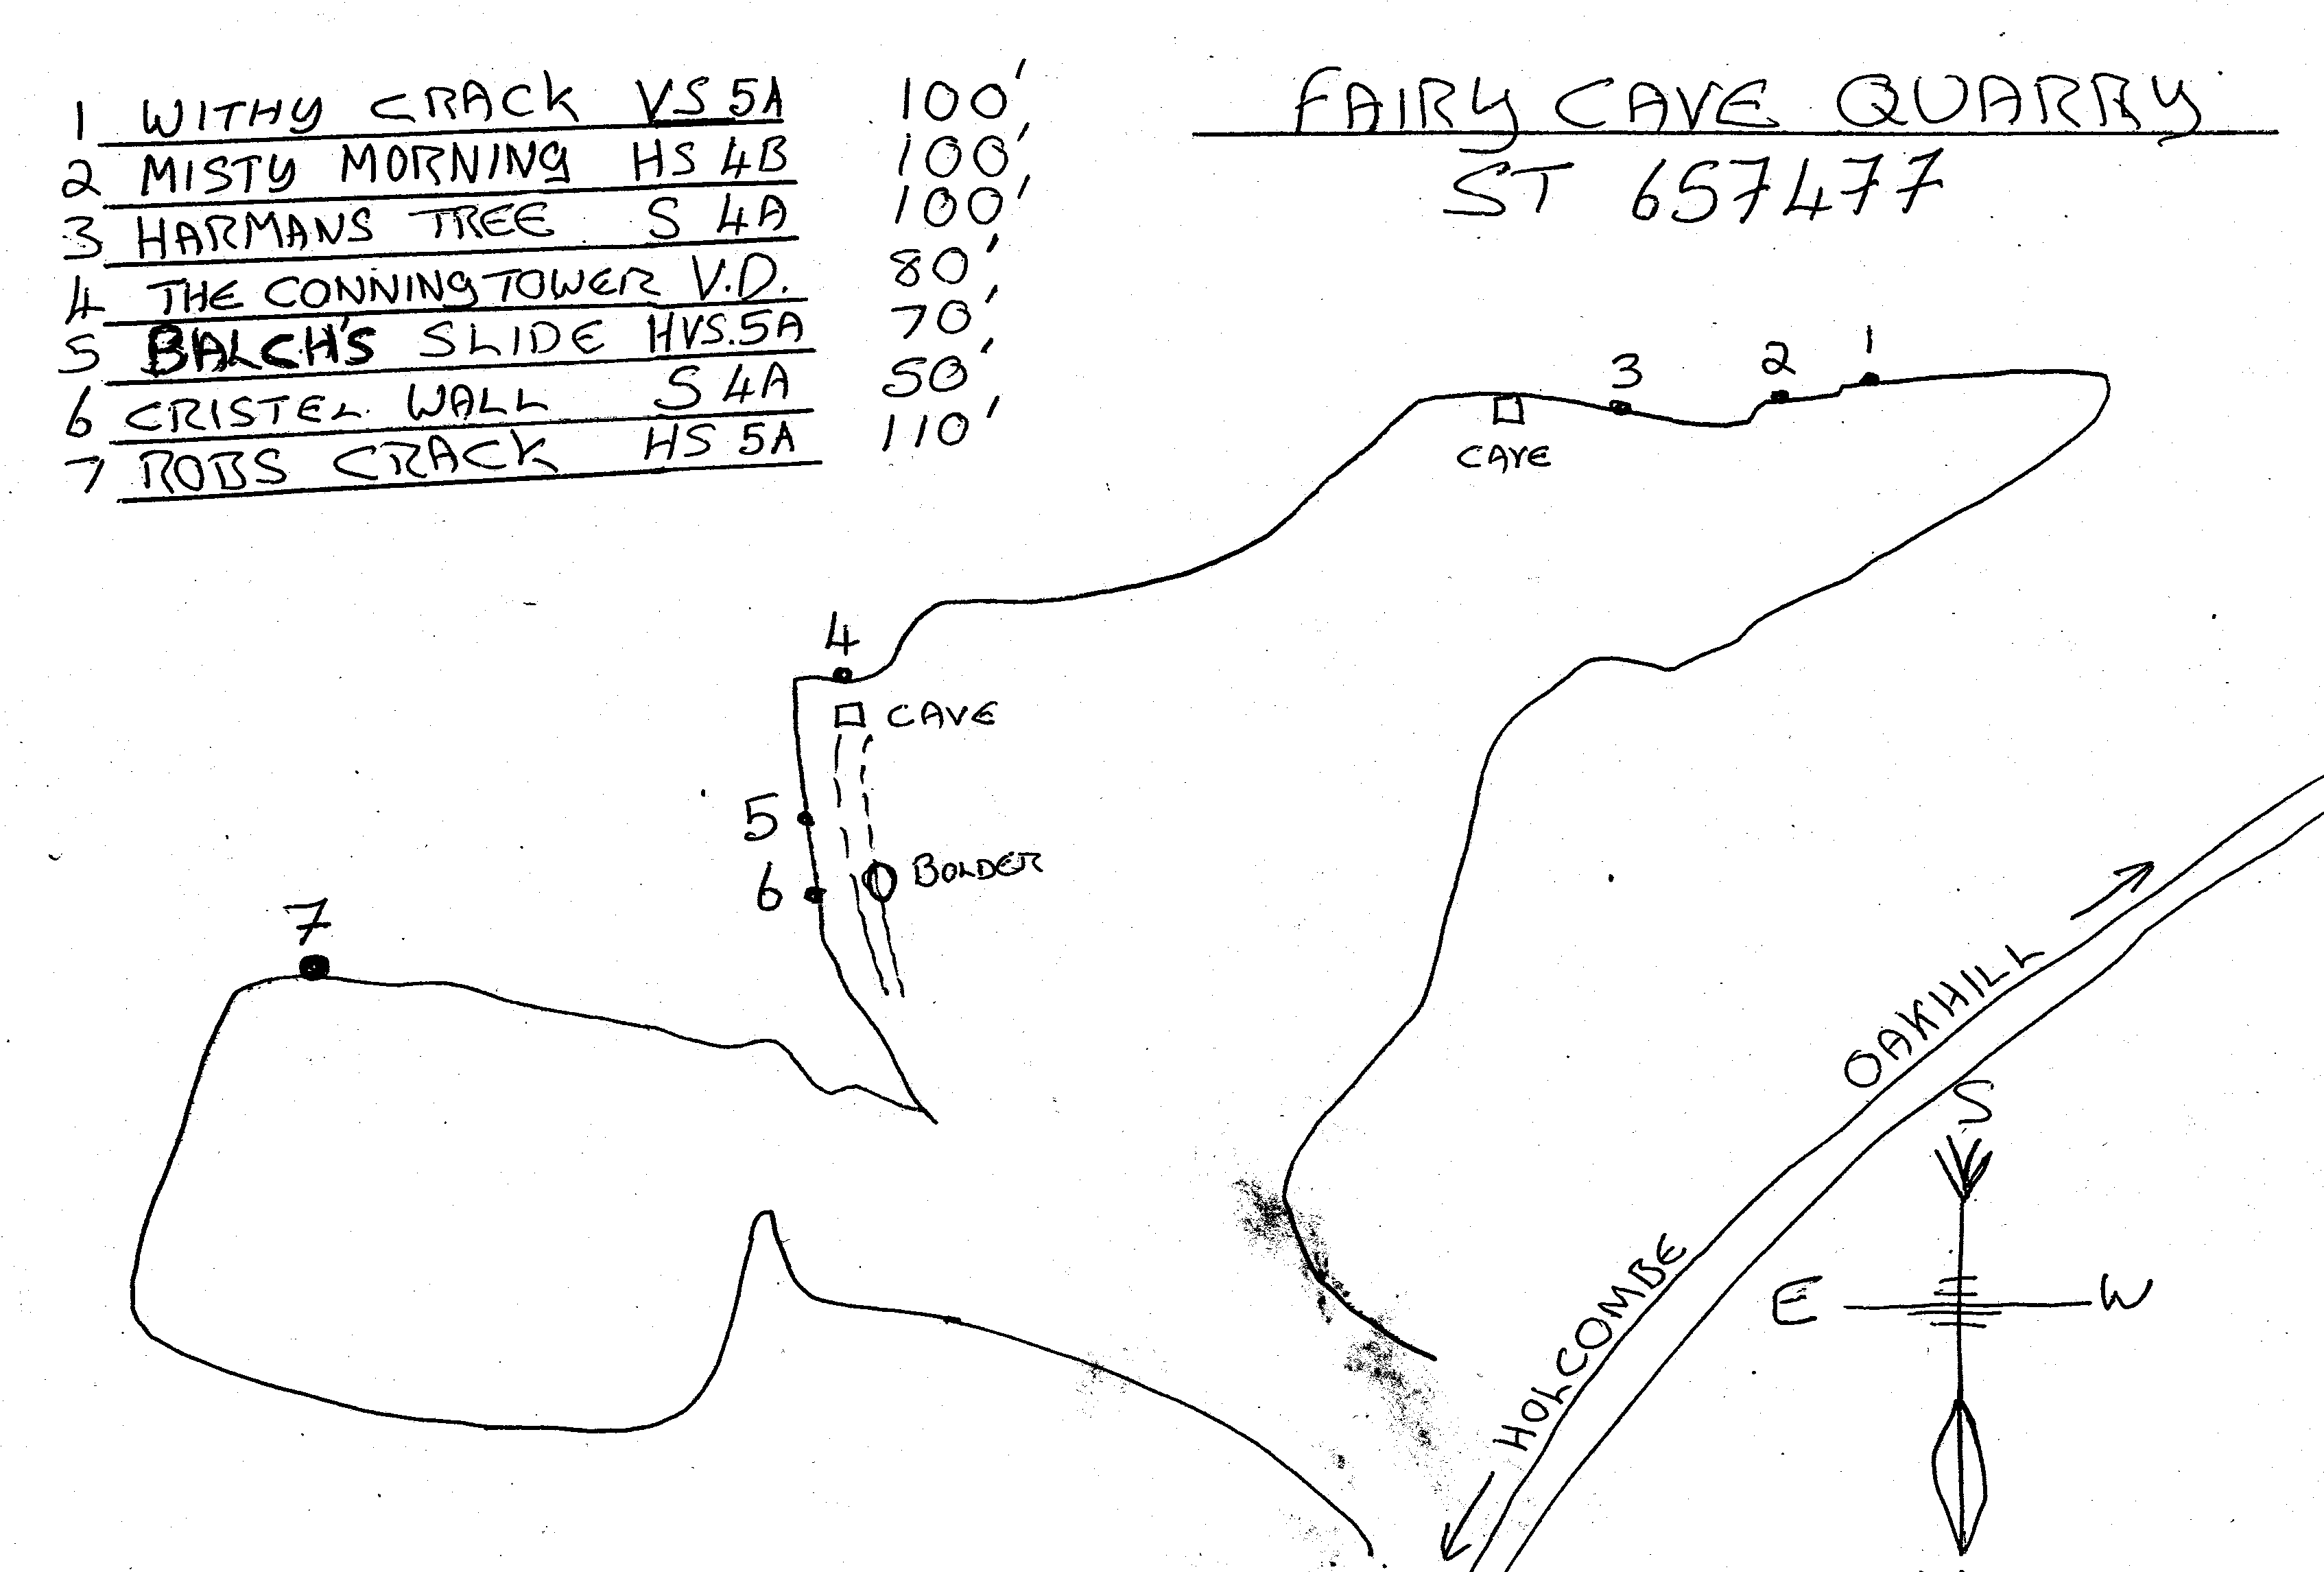 FAIRY CAVE QUARRY
ST 657477
1 WITHY CRACK VS 5A 100'
2 MISTY MORNING HS 4B 100'
3 HARMANS TREE S 4A 100'
4 THE CONNING TOWER V.D. 80'
5 BALCH'S SLIDE HVS.5A 70'
6 CRISTEL WALL S 4A 50'
7 ROBS CRACK HS 5A 110'
1
2
3
CAVE
4
CAVE
5
6
BOLDER
7
OAKHILL
HOLCOMBE
S
E W